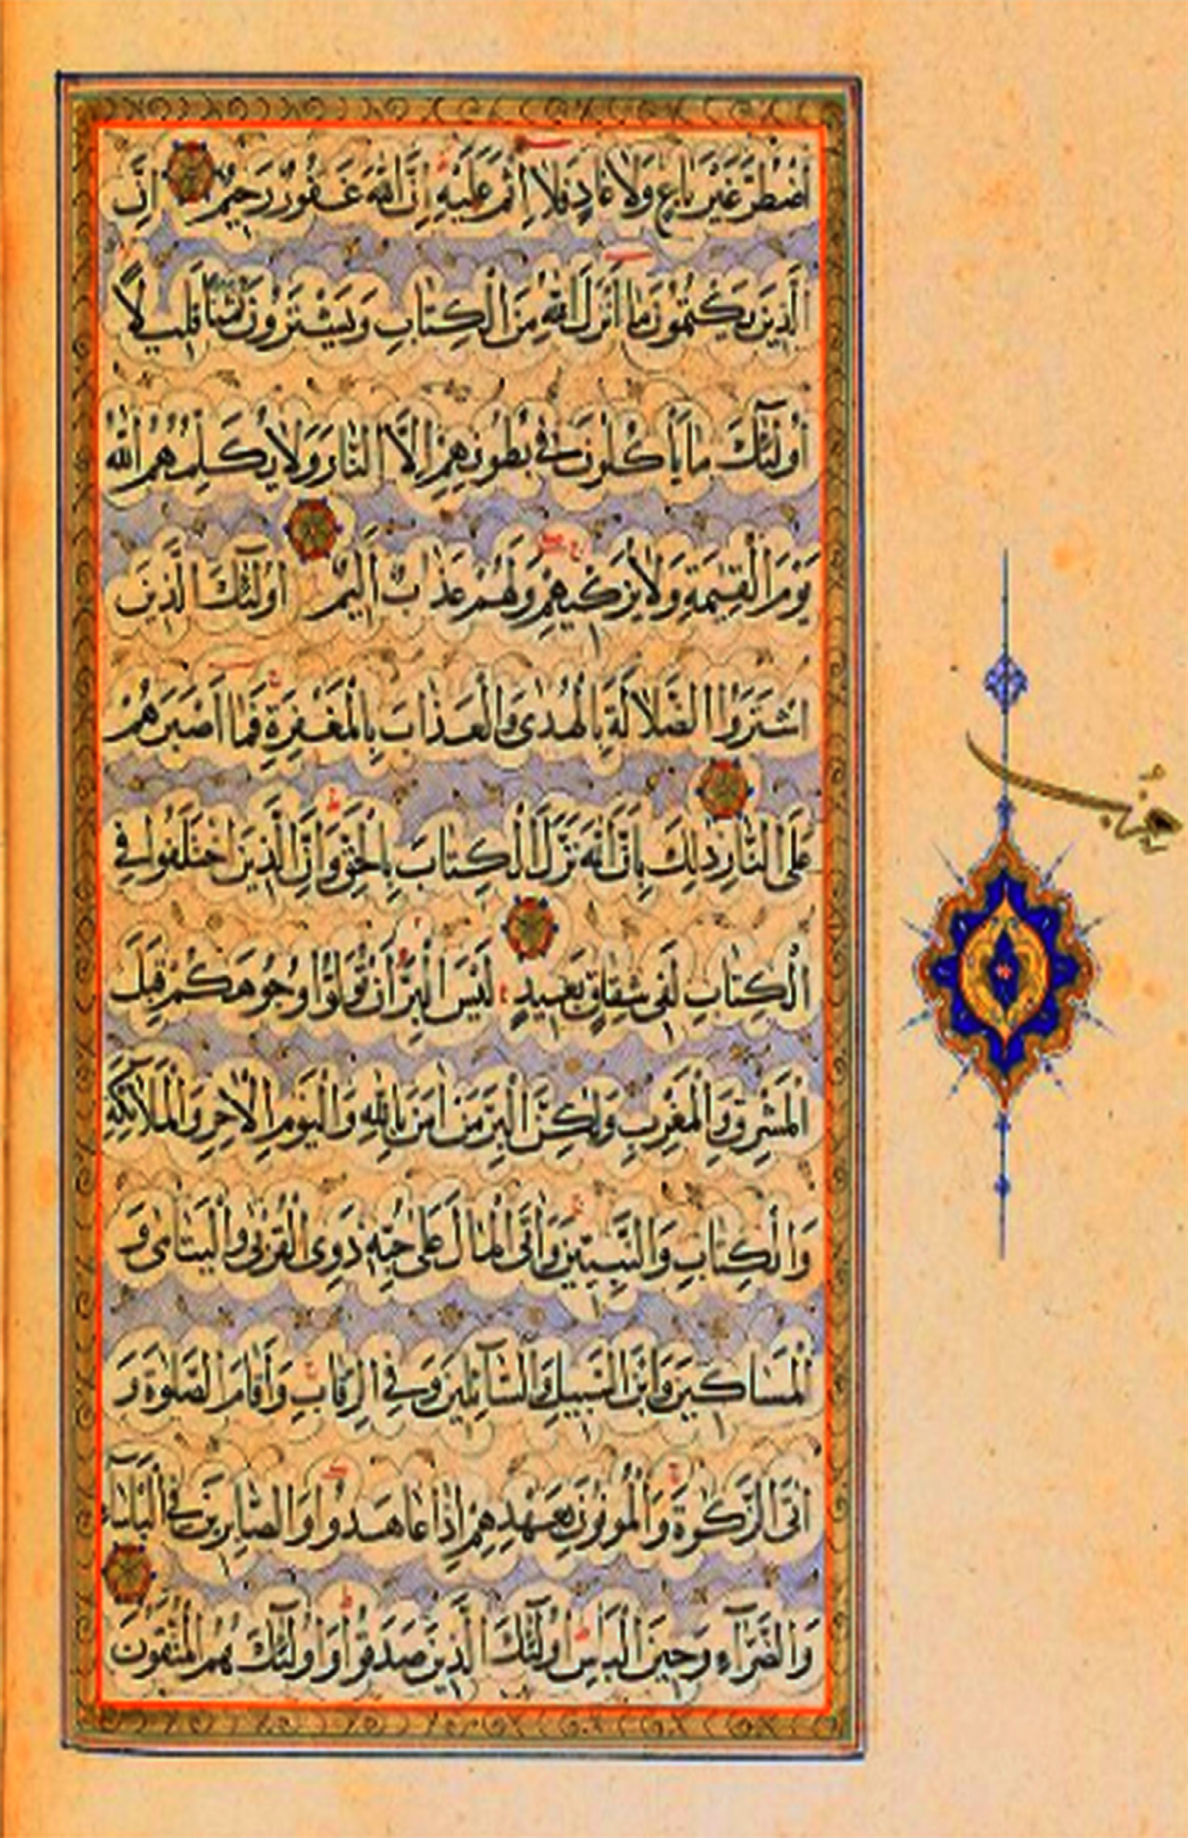 اضْطُرَّ غَيْرَ بَاغٍ وَلَا عَادٍ فَلَا إِثْمَ عَلَيْهِ إِنَّ اللَّهَ غَفُورٌ رَحِيمٌ إِنَّ
الَّذِينَ يَكْتُمُونَ مَا أَنْزَلَ اللَّهُ مِنَ الْكِتَابِ وَيَشْتَرُونَ ثَمَنًا قَلِيلًا
أُولَٰئِكَ مَا يَأْكُلُونَ فِي بُطُونِهِمْ إِلَّا النَّارَ وَلَا يُكَلِّمُهُمُ اللَّهُ
يَوْمَ الْقِيٰمَةِ وَلَا يُزَكِّيهِمْ وَلَهُمْ عَذَابٌ أَلِيمٌ أُولَٰئِكَ الَّذِينَ
اشْتَرَوُا الضَّلَالَةَ بِالْهُدَىٰ وَالْعَذَابَ بِالْمَغْفِرَةِ فَمَا أَصْبَرَهُمْ
عَلَى النَّارِ ذَٰلِكَ بِأَنَّ اللَّهَ نَزَّلَ الْكِتَابَ بِالْحَقِّ وَإِنَّ الَّذِينَ اخْتَلَفُوا فِي
الْكِتَابِ لَفِي شِقَاقٍ بَعِيدٍ لَيْسَ الْبِرَّ أَنْ تُوَلُّوا وُجُوهَكُمْ قِبَلَ
الْمَشْرِقِ وَالْمَغْرِبِ وَلَٰكِنَّ الْبِرَّ مَنْ آمَنَ بِاللَّهِ وَالْيَوْمِ الْآخِرِ وَالْمَلَآئِكَةِ
وَالْكِتَابِ وَالنَّبِيِّينَ وَآتَى الْمَالَ عَلَىٰ حُبِّهِ ذَوِي الْقُرْبَىٰ وَالْيَتَامَىٰ وَ
الْمَسَاكِينَ وَابْنَ السَّبِيلِ وَالسَّآئِلِينَ وَفِي الرِّقَابِ وَأَقَامَ الصَّلَوٰةَ وَ
آتَى الزَّكَوٰةَ وَالْمُوفُونَ بِعَهْدِهِمْ إِذَا عَاهَدُوا وَالصَّابِرِينَ فِي الْبَأْسَآءِ
وَالضَّرَّآءِ وَحِينَ الْبَأْسِ أُولَٰئِكَ الَّذِينَ صَدَقُوا وَأُولَٰئِكَ هُمُ الْمُتَّقُونَ
حزب